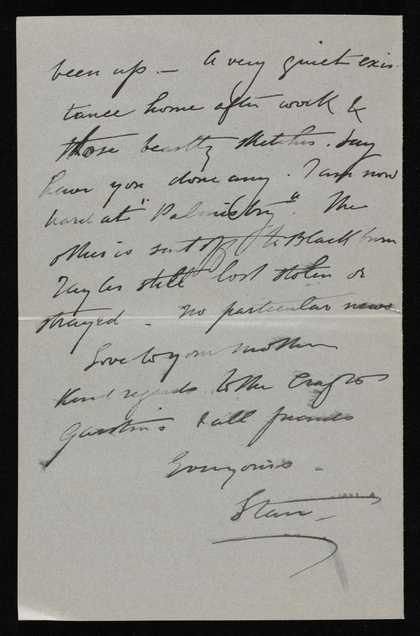 been up. — A very quiet exis-
tance home after work &
those beastly sketches. Say
have you done any. I am now
hard at "Palmistry". The
other is sent off to Blackburn
Taylor still lost stolen or
strayed — No particular news
Love to your mother
Kind regards to the Crafts
Garstins & all friends
Ever yours —
Stan —